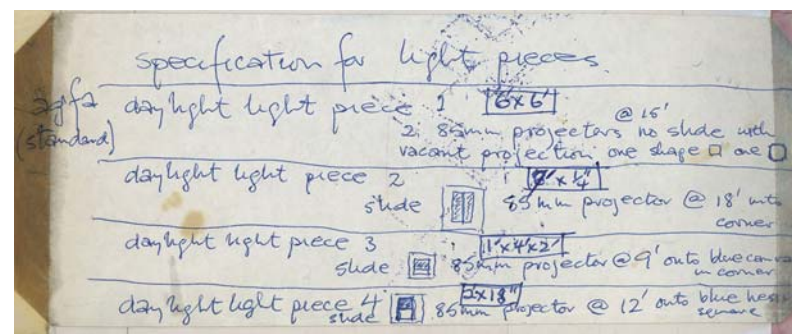 specification for light pieces
agfa
(standard)
daylight light piece 1 6'x6'
@ 15'
2. 85mm projectors no slide with
vacant projection one shape □ one □
daylight light piece 2 x ¼"
slide 85mm projector @ 18' into
corner
daylight light piece 3 1'x4'x2'
slide 85mm projector @ 9' onto blue canvas
in corner
daylight light piece 4 x18"
slide 85mm projector @ 12' onto blue
square